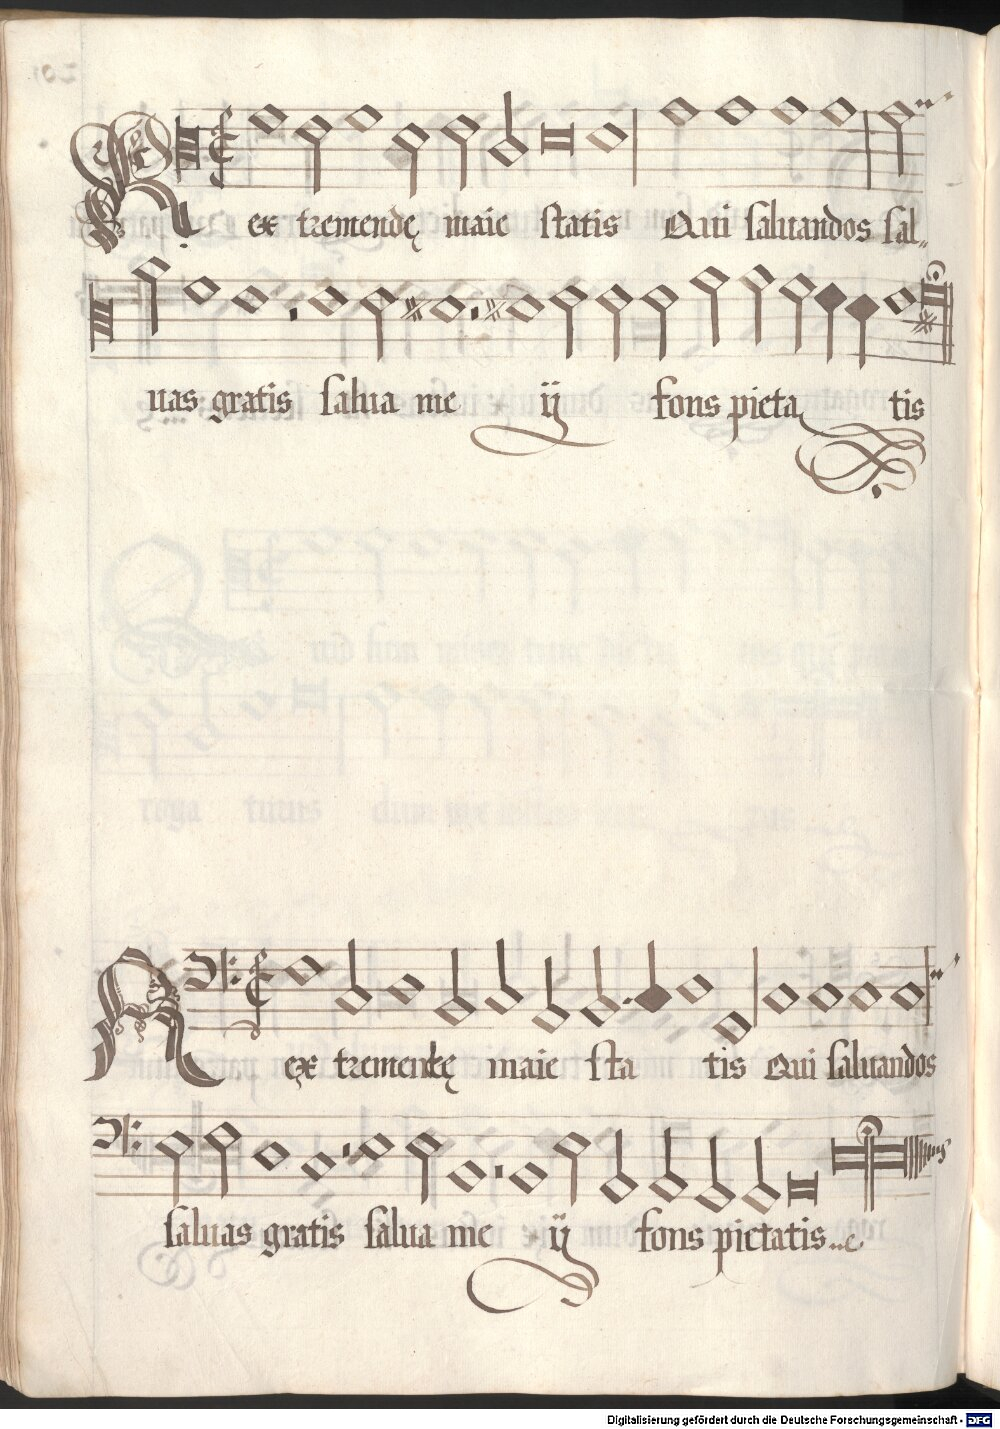 Rex tremendę maie statis Qui saluandos sal„
uas gratis salua me ij fons pieta tis
Rex tremendę maie sta tis Qui saluandos
saluas gratis salua me ij fons pietatis
Digitalisierung gefördert durch die Deutsche Forschungsgemeinschaft - DFG